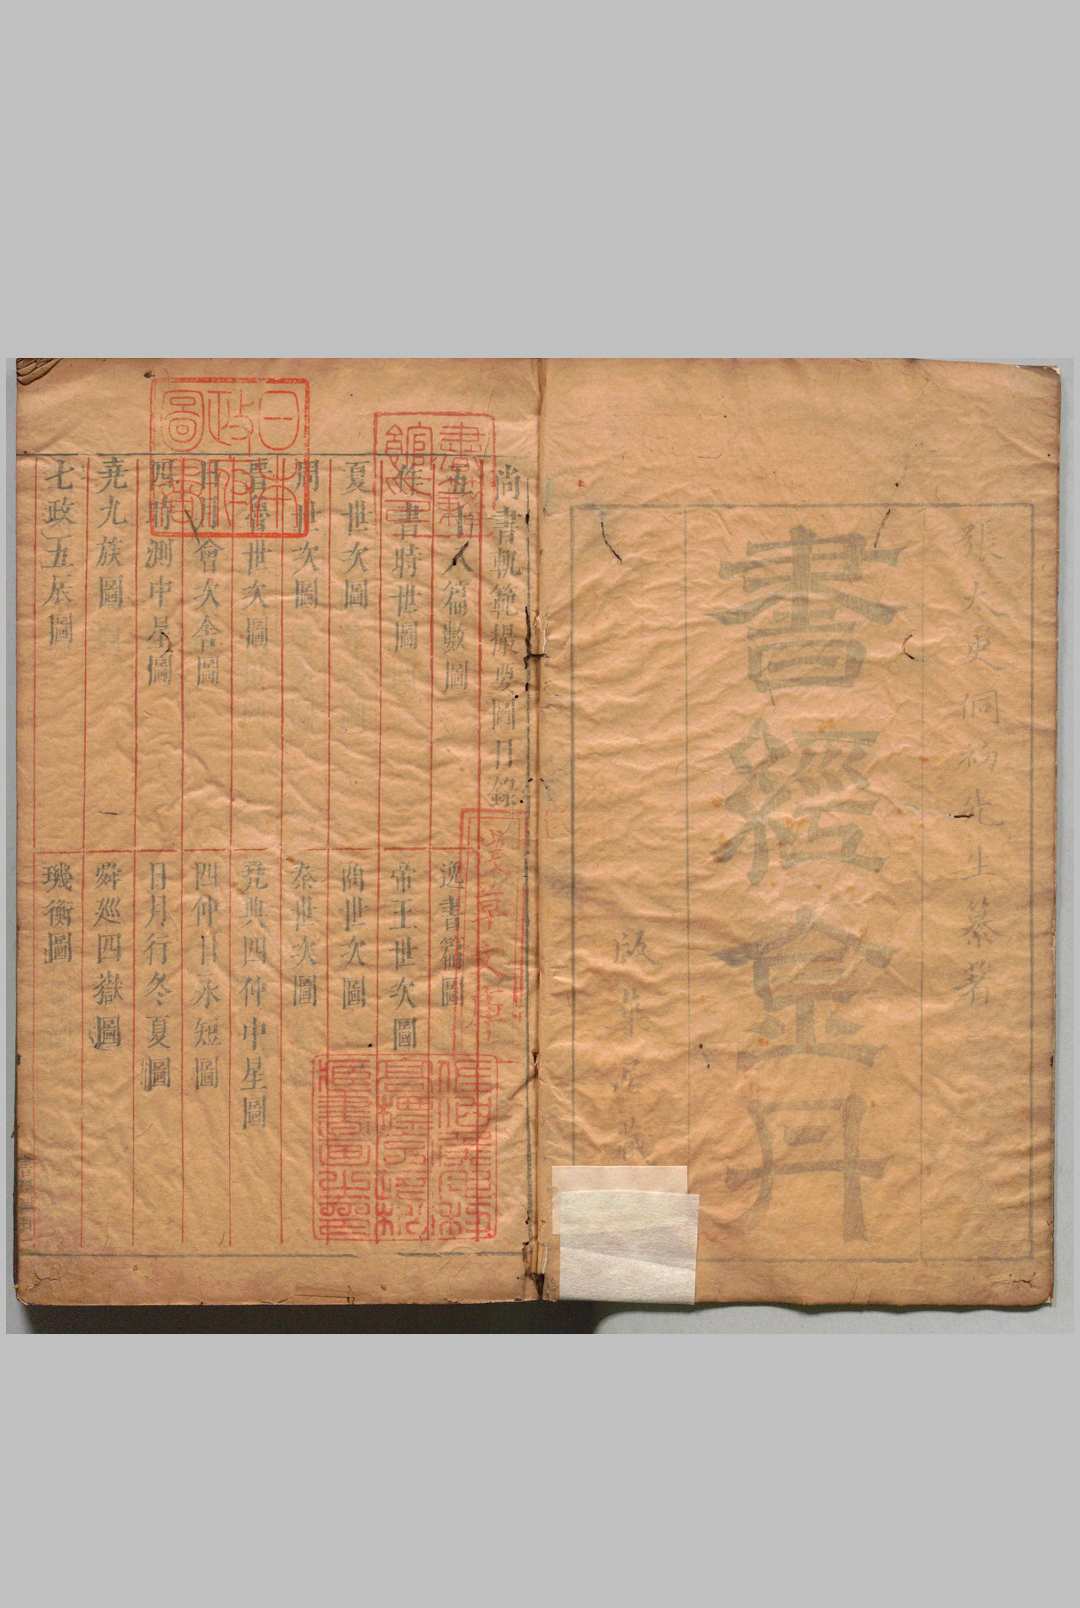 張太史侗初先生纂著
書經金丹
尚書軌範撮要圖目錄
五十八篇數圖
逸書篇圖
作書時世圖
帝王世次圖
夏世次圖
商世次圖
周世次圖
秦世次圖
晋魯世次圖
堯典四仲中星圖
日月會次舍圖
四仲日永短圖
四時測中星圖
日月行冬夏圖
堯九族圖
舜廵四嶽圖
七政五辰圖
璣衡圖
日本
政府
圖書